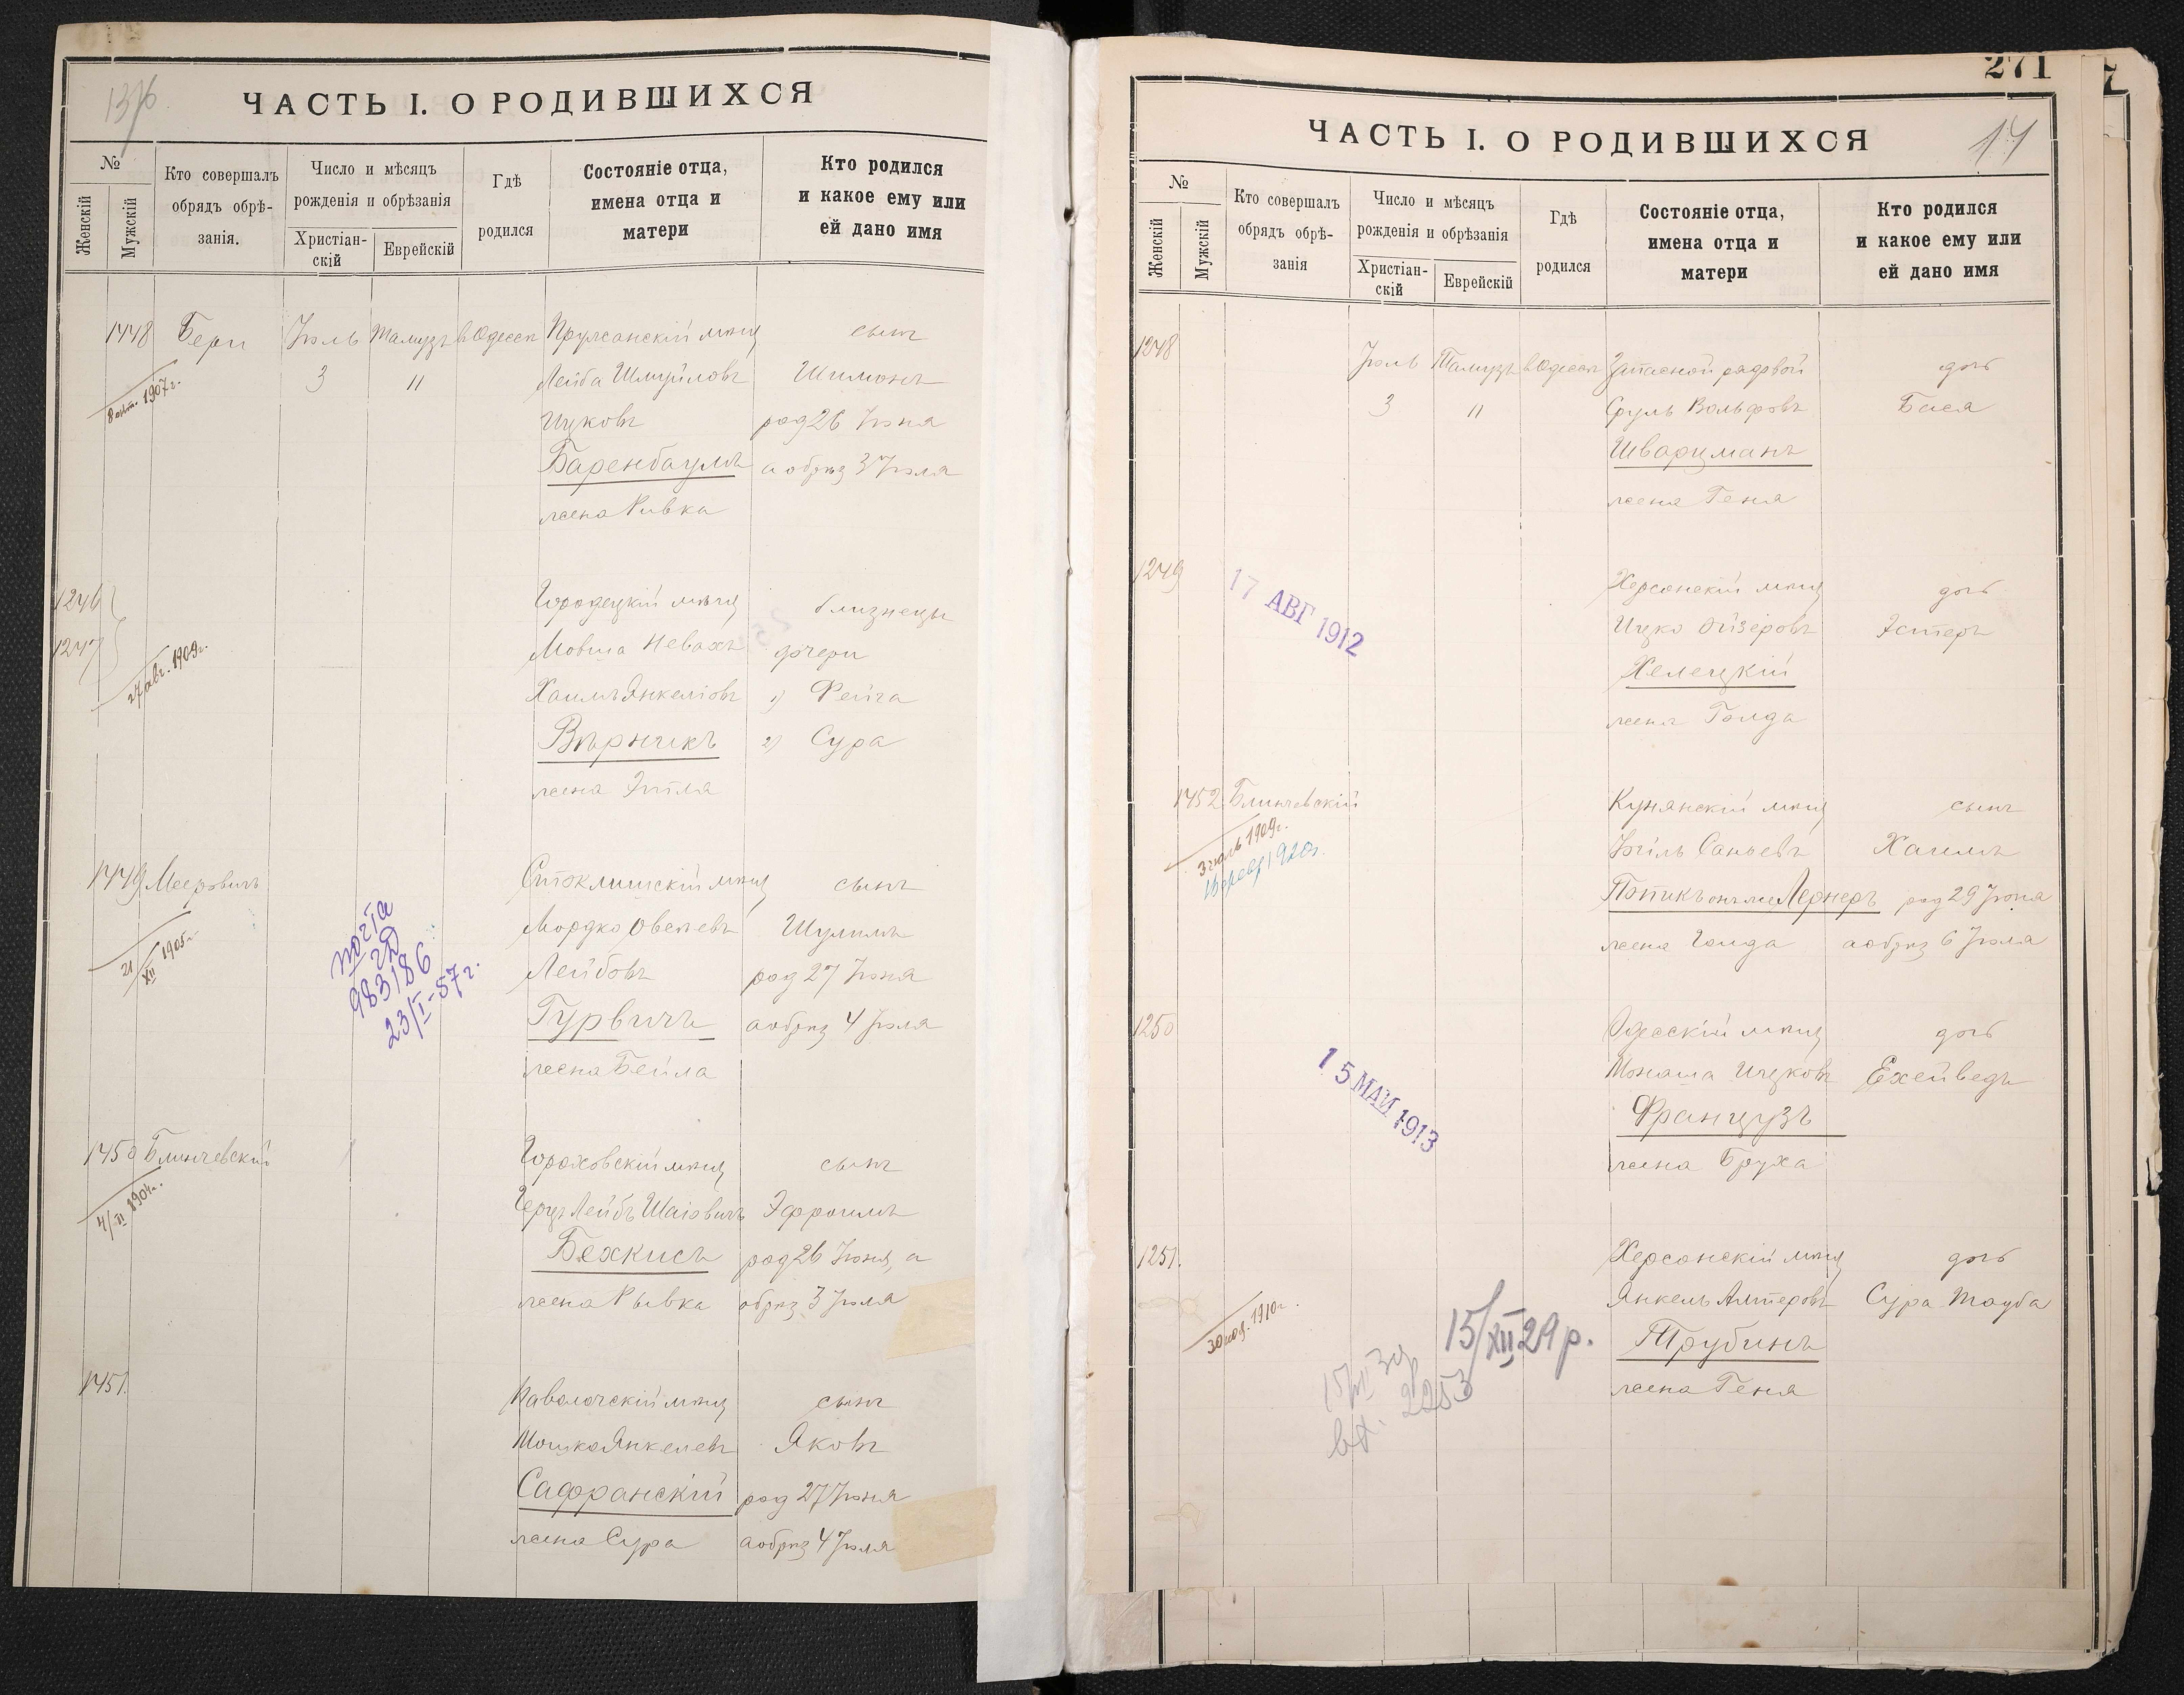 137
ЧАСТЬ I. О РОДИВШИХСЯ
№
Женскій
Мужскій
Кто совершалъ
обрядъ обрѣ-
занія.
Число и мѣсяцъ
рожденія и обрѣзанія
Христіан-
скій
Еврейскій
Гдѣ
родился
Состояніе отца,
имена отца и
матери
Кто родился
и какое ему или
ей дано имя
1448 Бери Іюль Тамузъ в Одессѣ мѣщ сынъ
8 окт. 1907г.
3 11 Лейба Шмуйловъ Шимонъ
Ицковъ род 26 Іюня
Баренбаумъ а обрѣз 3 Іюля
жена Ривка
1246
1247
27 авг. 1909г.
Городецкій мѣщ близнецы
Мовша Невахъ дочери
Хаимъ Янкеліовъ 1) Фейга
Вѣрникъ 2) Сура
жена Этля
1449 Мееровичъ мѣщ сынъ
21/XII 1905г.
почта
983186
23/I-57г.
Мордко Овсѣевъ Шулимъ
Лейбовъ род 27 Іюня
Гурвичъ а обрѣз 4 Іюля
жена Бейла
1450 Блинчевскій Гороховскій мѣщ сынъ
4/VI 1904г.
Герцъ Лейбъ Шаіовичъ Эфроимъ
Бехкисъ род 26 Іюня, а
жена Рывка обрѣз 3 Іюля
1451. Паволочскій мѣщ сынъ
Мошко Янкелев Яковъ
Сафранскій род 27 Іюня
жена Сура а обрѣз 4 Іюля
271
14
ЧАСТЬ I. О РОДИВШИХСЯ
№
Женскій
Мужскій
Кто совершалъ
обрядъ обрѣ-
занія
Число и мѣсяцъ
рожденія и обрѣзанія
Христіан-
скій
Еврейскій
Гдѣ
родился
Состояніе отца,
имена отца и
матери
Кто родился
и какое ему или
ей дано имя
1248 Іюль Тамузъ в Одессѣ Запасной рядовой дочь
3 11 Сруль Вольфовъ Бася
Шварцманъ
жена Геня
1249 Херсонскій мѣщ дочь
17 АВГ 1912
Ицко Ойзеровъ Эстеръ
Хелецкій
жена Голда
1452 Блинчевскій Кунянскій мѣщ сынъ
3 іюль 1909г.
1920г.
Хаимъ
онъ же Лернеръ род 29 Іюня
жена Голда а обрѣз 6 Іюля
1250 Одесскій мѣщ дочь
15 МАЙ 1913
Монаша Ицковъ Ехейведъ
Французъ
жена Бруха
1251. Херсонскій мѣщ дочь
30 ноя. 1910г.
15/XII 29 р.
вх. 2253
Янкель Алтеровъ Сура Тауба
Трубинъ
жена Геня